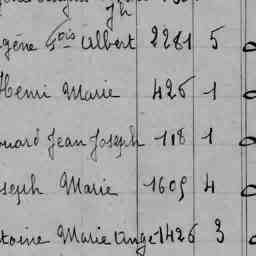 gène fois Albert 2281 5
Henri Marie 426 1
ouard Jean Joseph 118 1
seph Marie 1609 4
toine Marie Ange 1426 3